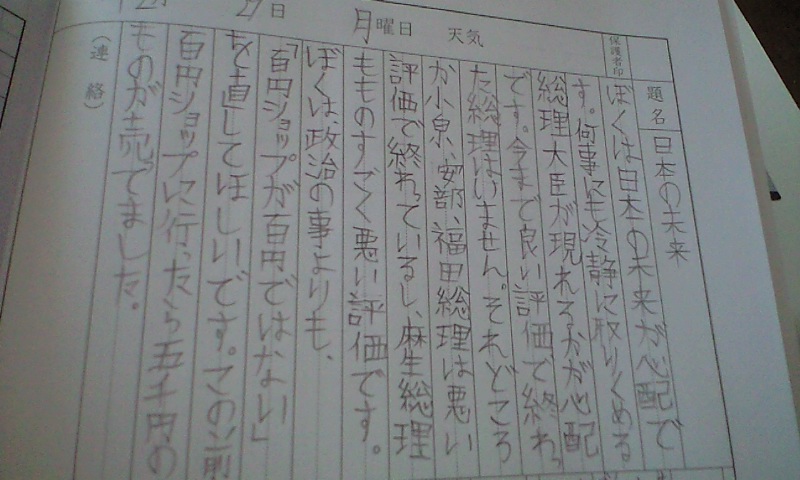 27日
月曜日
天気
保護者印
題名
日本の未来
ぼくは日本の未来が心配で
す。何事にも冷静に取りくめる
総理大臣が現れるかが心配
です。今まで良い評価で終わっ
た総理はいません。それどころ
か小泉、安部、福田総理は悪い
評価で終わっているし、麻生総理
もものすごく悪い評価です。
ぼくは、政治の事よりも、
「百円ショップが百円ではない」
を直してほしいです。この前
百円ショップに行ったら五千円の
ものが売ってました。
(連絡)